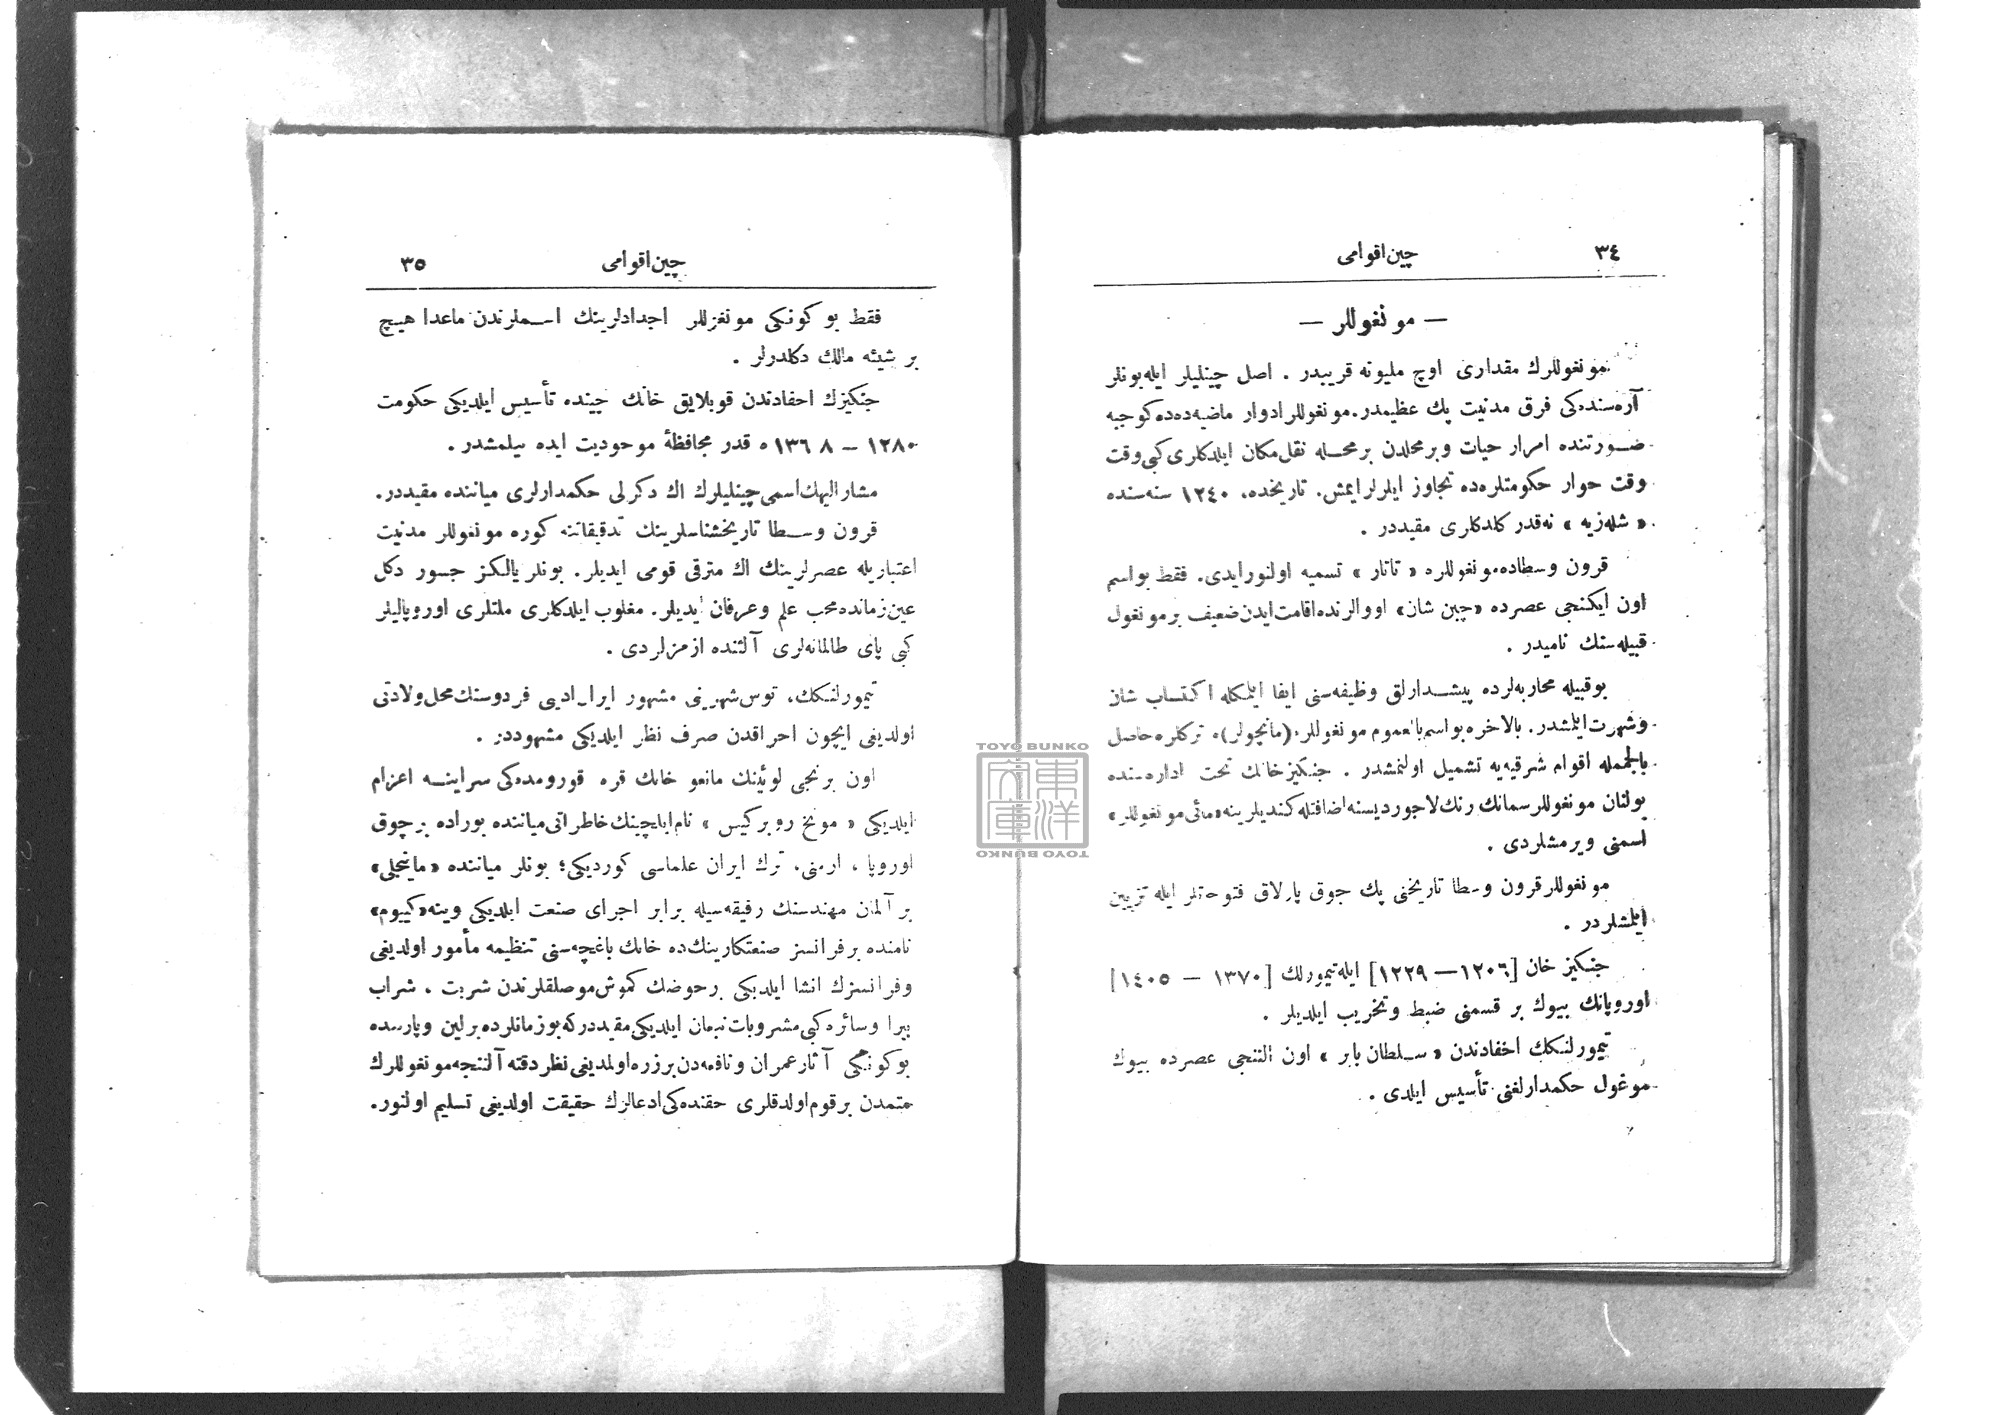 ٣٤
چين اقوامى
— مونغوللر —
مونغوللرك مقدارى اوچ مليونه قريبدر . اصل چينليلر ايله بونلر
آره سنده كى فرق مدنيت پك عظيمدر. مونغوللر ادوار ماضيه ده ده كوچبه
صورتنده امرار حيات وبر محلدن بر محله نقل مكان ايلدكلرى كبى وقت
وقت جوار حكومتلره ده تجاوز ايلرلر ايمش. تاريخده، ١٢٤٠ سنه سنده
« شله زيه » نه قدر كلدكلرى مقيددر .
قرون وسطاده مونغوللره « تاتار » تسميه اولنور ايدى. فقط بو اسم
اون ايكنجى عصرده «چين شان» اووالرنده اقامت ايدن ضعيف بر مونغول
قبيله سنك ناميدر .
بوقبيله محاربه لرده پيشدارلق وظيفه سنى ايفا ايلمكله اكتساب شان
وشهرت ايلمشدر. بالاخره بو اسم بالعموم مونغوللره (مانچولر)ه تركلره حاصل
بالجمله اقوام شرقيه يه تشميل اولنمشدر . جنكيز خانك تحت اداره سنده
بولنان مونغوللر سمانك رنك لاجورديسنه اضافتله كنديلرينه «مائى مونغوللر»
اسمنى ويرمشلردى .
مونغوللر قرون وسطا تاريخنى پك چوق پارلاق فتوحاتلر ايله تزيين
ايلمشلردر .
جنكيز خان [١٢٠٦ — ١٢٢٩] ايله تيمورلنك [١٣٧٠ — ١٤٠٥]
اوروپانك بيوك بر قسمنى ضبط وتخريب ايلديلر .
تيمورلنكك احفادندن « سلطان بابر » اون التنجى عصرده بيوك
موغول حكمدارلغنى تأسيس ايلدى .
چين اقوامى
٣٥
فقط بو كونكى مونغوللر اجدادلرينك اسملرندن ماعدا هيچ
بر شيئه مالك دكلدرلر .
جنكيزك احفادندن قوبلايق خانك چينده تأسيس ايلديكى حكومت
١٢٨٠ — ١٣٦٨ ه قدر محافظهٔ موجوديت ايده بيلمشدر .
مشار اليهك اسمى چينليلرك اك دكرلى حكمدارلرى مياننده مقيددر.
قرون وسطا تاريخشناسلرينك تدقيقاتنه كوره مونغوللر مدنيت
اعتباريله عصرلرينك اك مترقى قومى ايديلر. بونلر يالكز جسور دكل
عين زمانده محب علم وعرفان ايديلر. مغلوب ايلدكلرى ملتلرى اوروپاليلر
كبى پاى ظالمانه لرى آلتنده ازمزلردى .
تيمورلنكك، توس شهرينى مشهور ايران اديبى فردوسنك محل ولادتى
اولديغى ايچون احراقدن صرف نظر ايلديكى مشهوددر .
اون برنجى لوئينك مانغو خانك قره قورومده كى سراينه اعزام
ايلديكى « مونخ روبركيس » نام ايلچينك خاطراتى مياننده بوراده بر چوق
اوروپا ، ارمنى، ترك ايران علماسى كورديكى؛ بونلر مياننده «مانجلى»
بر آلمان مهندسنك رفيقه سيله برابر اجراى صنعت ايلديكى وينه «كييوم»
نامنده بر فرانسز صنعتكارينك ده خانك باغچه سنى تنظيمه مأمور اولديغى
وفرانسزك انشا ايلديكى بر حوضك كموش موصلقلرندن شربت ، شراب
بيرا وسائره كبى مشروبات نبعان ايلديكى مقيددر كه بو زمانلرده برلين وپارسده
بو كونكى آثار عمران ونافعه دن بر زره اولمديغى نظر دقته آلنجه مونغوللرك
متمدن بر قوم اولدقلرى حقنده كى ادعالرك حقيقت اولديغى تسليم اولنور.
TOYO BUNKO
東洋文庫
TOYO BUNKO